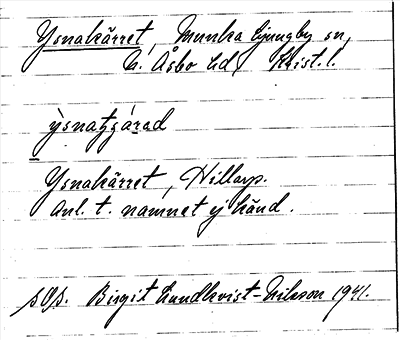 Ysnakärret, Munka Ljungby sn,
N. Åsbo hd, Krist. l.
Ysnakärret, Hillarp.
Anl. t. namnet ej känd.
Birgit Lundkvist-Nilsson 1941.